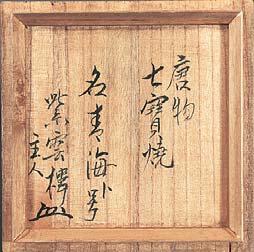 唐物
七寶燒
名青海ト号
紫雲樓
主人